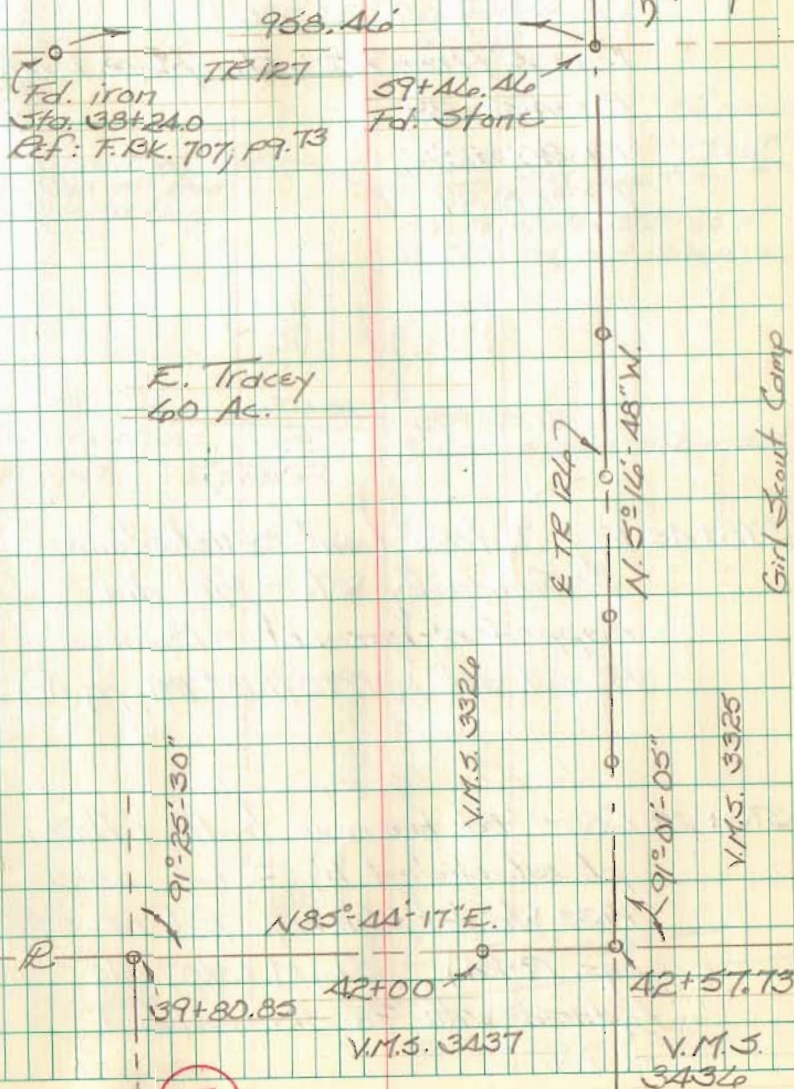 958.46
TR 127
Fd. iron
Sta. 38+24.0
Ref: F.BK. 707, pg. 73
59+46.46
Fd. Stone
E. Tracey
60 Ac.
℄ TR 126
N. 5°-16'-48" W.
Girl Scout Camp
V.M.S. 3326
V.M.S. 3325
91°-25'-30"
91°-01'-05"
N 85°-44'-17" E.
39+80.85
42+00
42+57.73
V.M.S. 3437
V.M.S.
3436